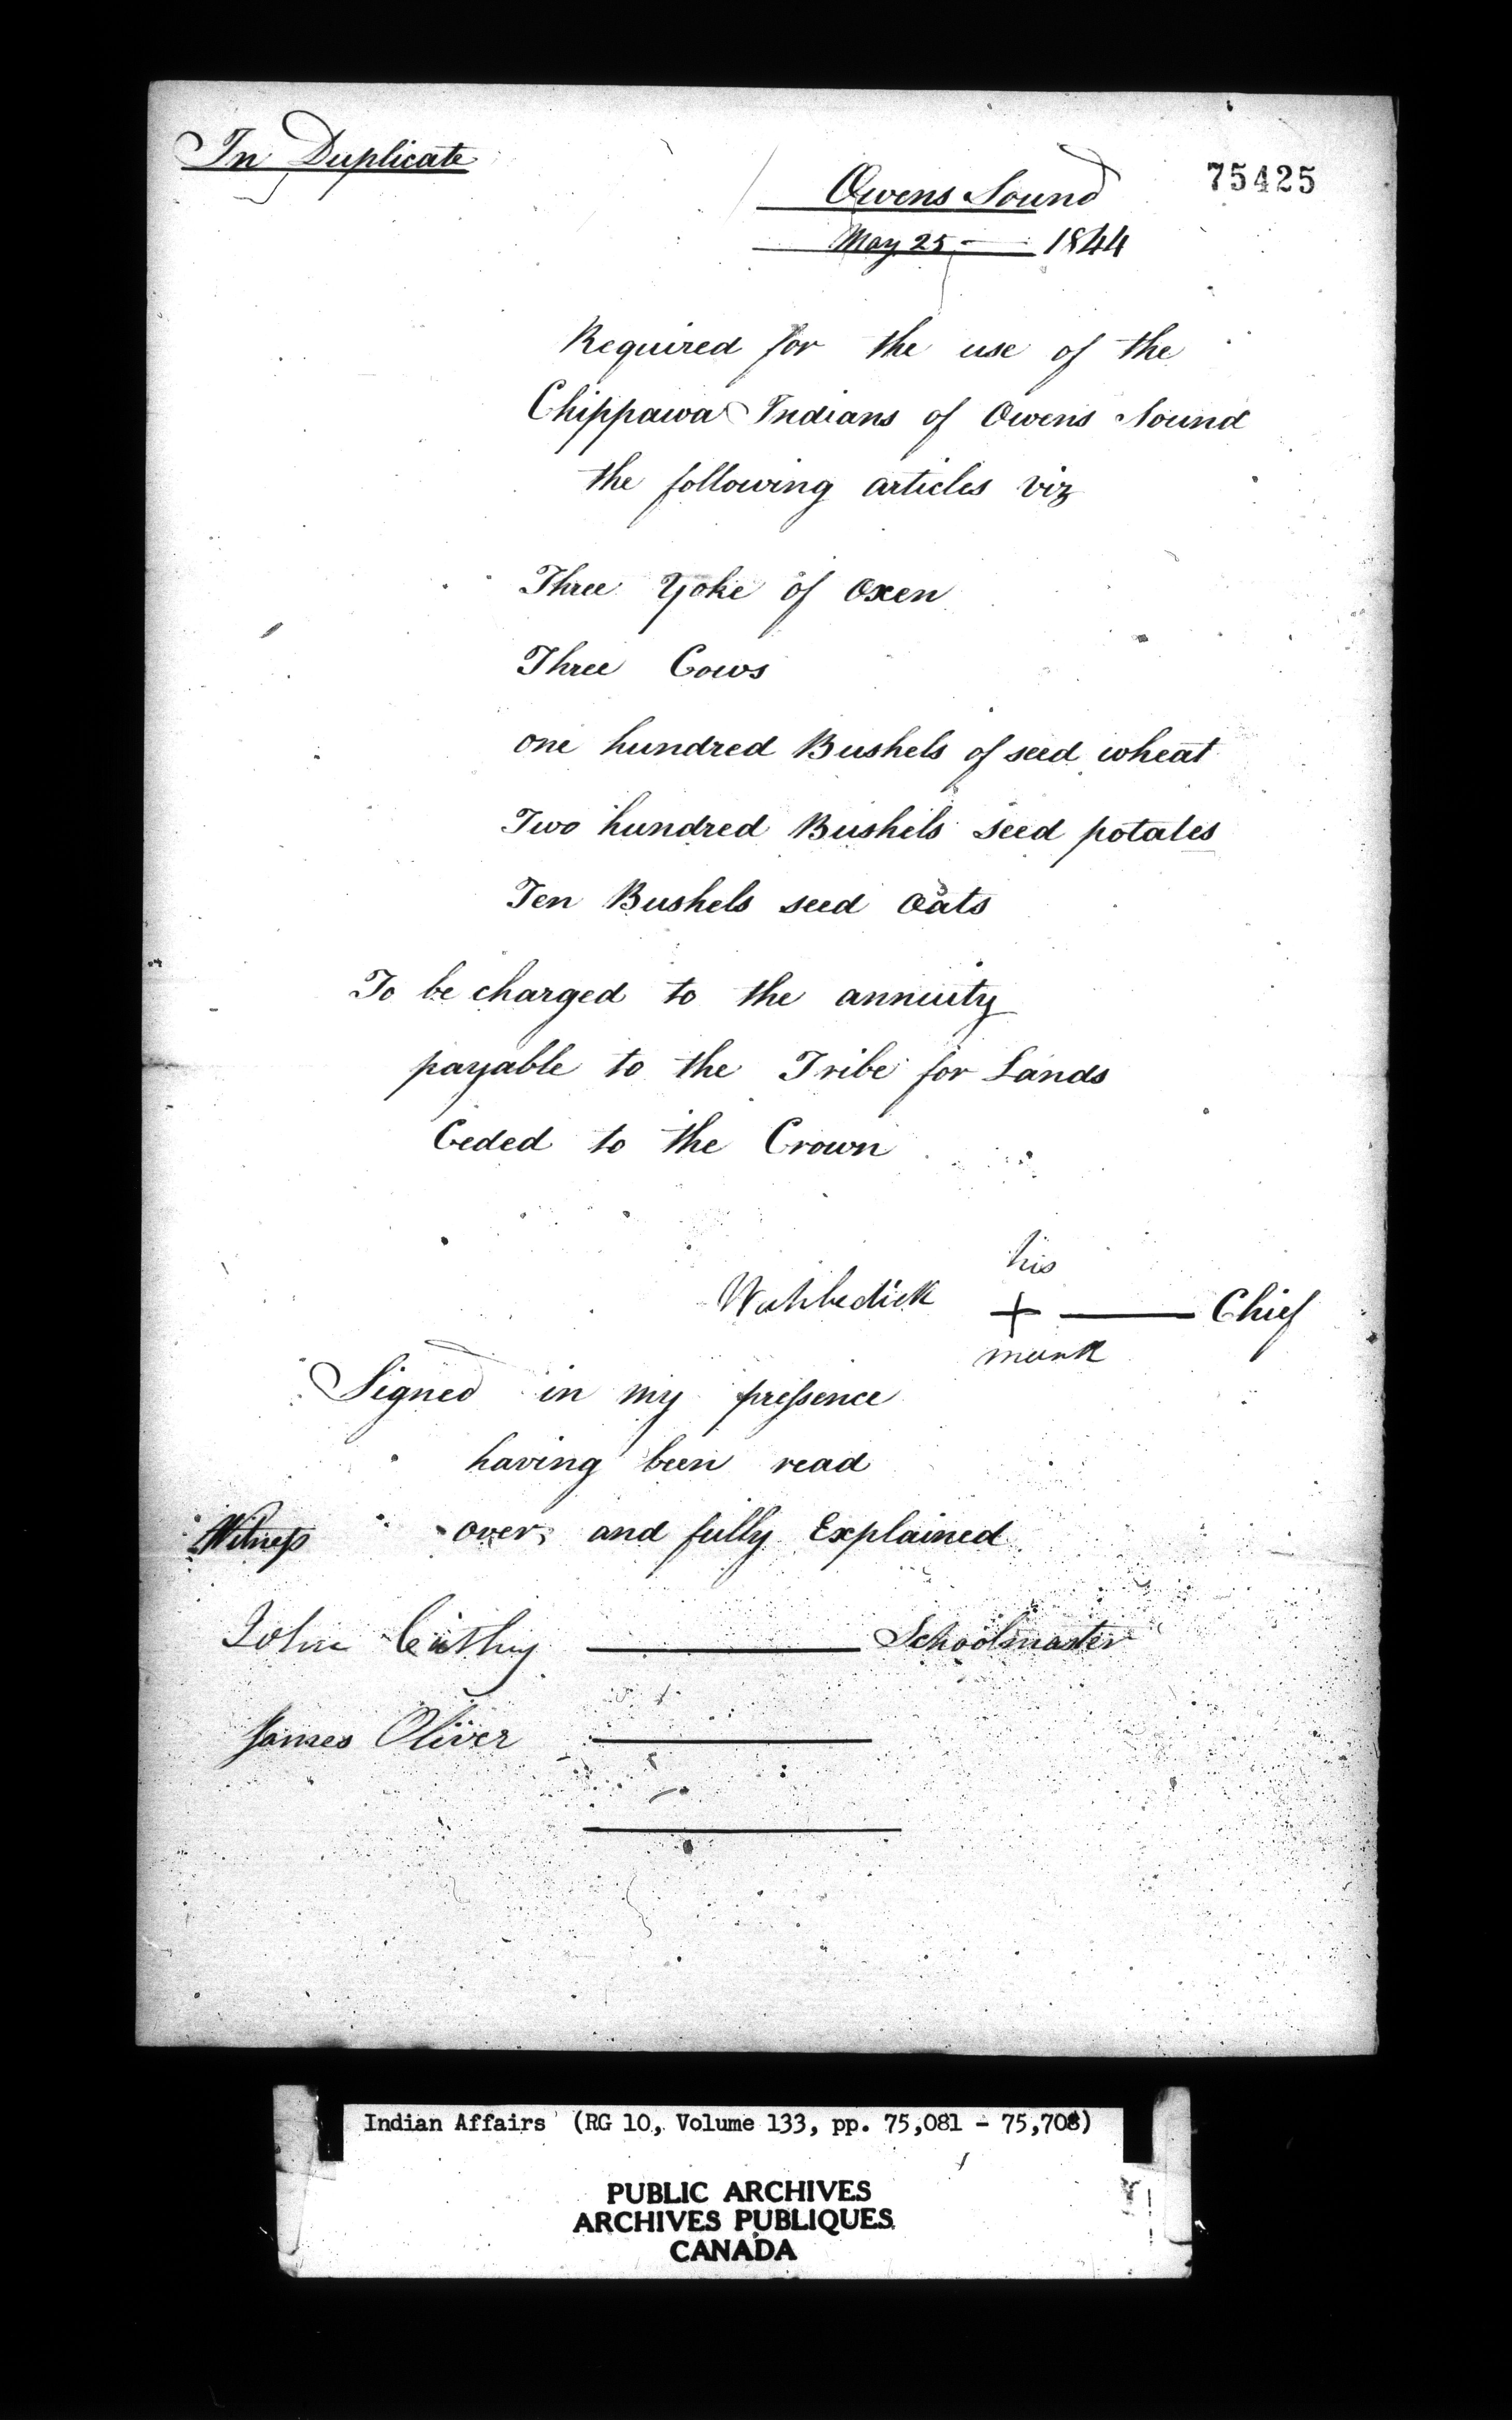 In Duplicate
75425
Owens Sound
May 25 — 1844
Required for the use of the
Chippawa Indians of Owens Sound
the following articles viz
Three Yoke of Oxen
Three Cows
one hundred Bushels of seed wheat
Two hundred Bushels seed potates
Ten Bushels seed Oats
To be charged to the annuity
payable to the Tribe for Lands
Ceded to the Crown
his
Wahbedick + — Chief
mark
Signed in my pressence
having been read
Witness over, and fully Explained
John — Schoolmaster
James Oliver —
Indian Affairs (RG 10, Volume 133, pp. 75,081 - 75,708)
PUBLIC ARCHIVES
ARCHIVES PUBLIQUES
CANADA